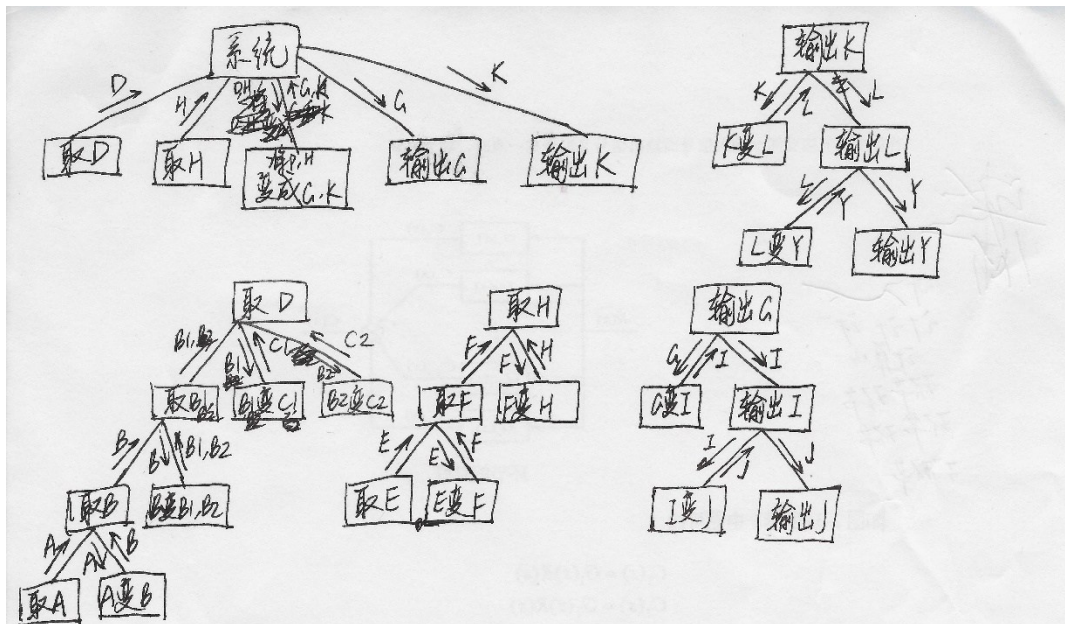 系统
D
H
DH
G,K
G
K
取D
取H
将D,H
变成G,K
输出G
输出K
输出K
K
L
L
K变L
输出L
L
Y
Y
L变Y
输出Y
取D
B1,B2
B1
C1
B2
C2
取B1
B2
B1变C1
B2变C2
B
B
B1,B2
取B
B变B1,B2
A
A
B
取A
A变B
取H
F
F
H
取F
F变H
E
E
F
取E
E变F
输出G
G
I
I
G变I
输出I
I
J
J
I变J
输出J